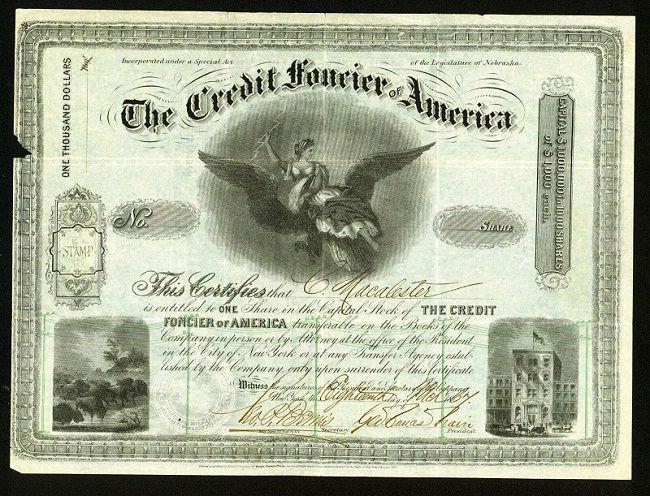 Incorporated under a Special Act of the Legislature of Nebraska.
The Credit Foncier of America
ONE THOUSAND DOLLARS
CAPITAL $1,000,000 in 1000 SHARES
of $1,000 each.
No.
SHARE
STAMP
This Certifies that C Macalester
is entitled to ONE Share in the Capital Stock of THE CREDIT
FONCIER OF AMERICA transferable on the Books of the
Company in person or by Attorney at the office of the President
in the City of New York or at any Transfer Agency estab
lished by the Company only upon surrender of this Certificate
Witness the signature of the President and Secretary of the Company
New York, this Eighteenth day of 67
Geo Francis Train
Secretary President